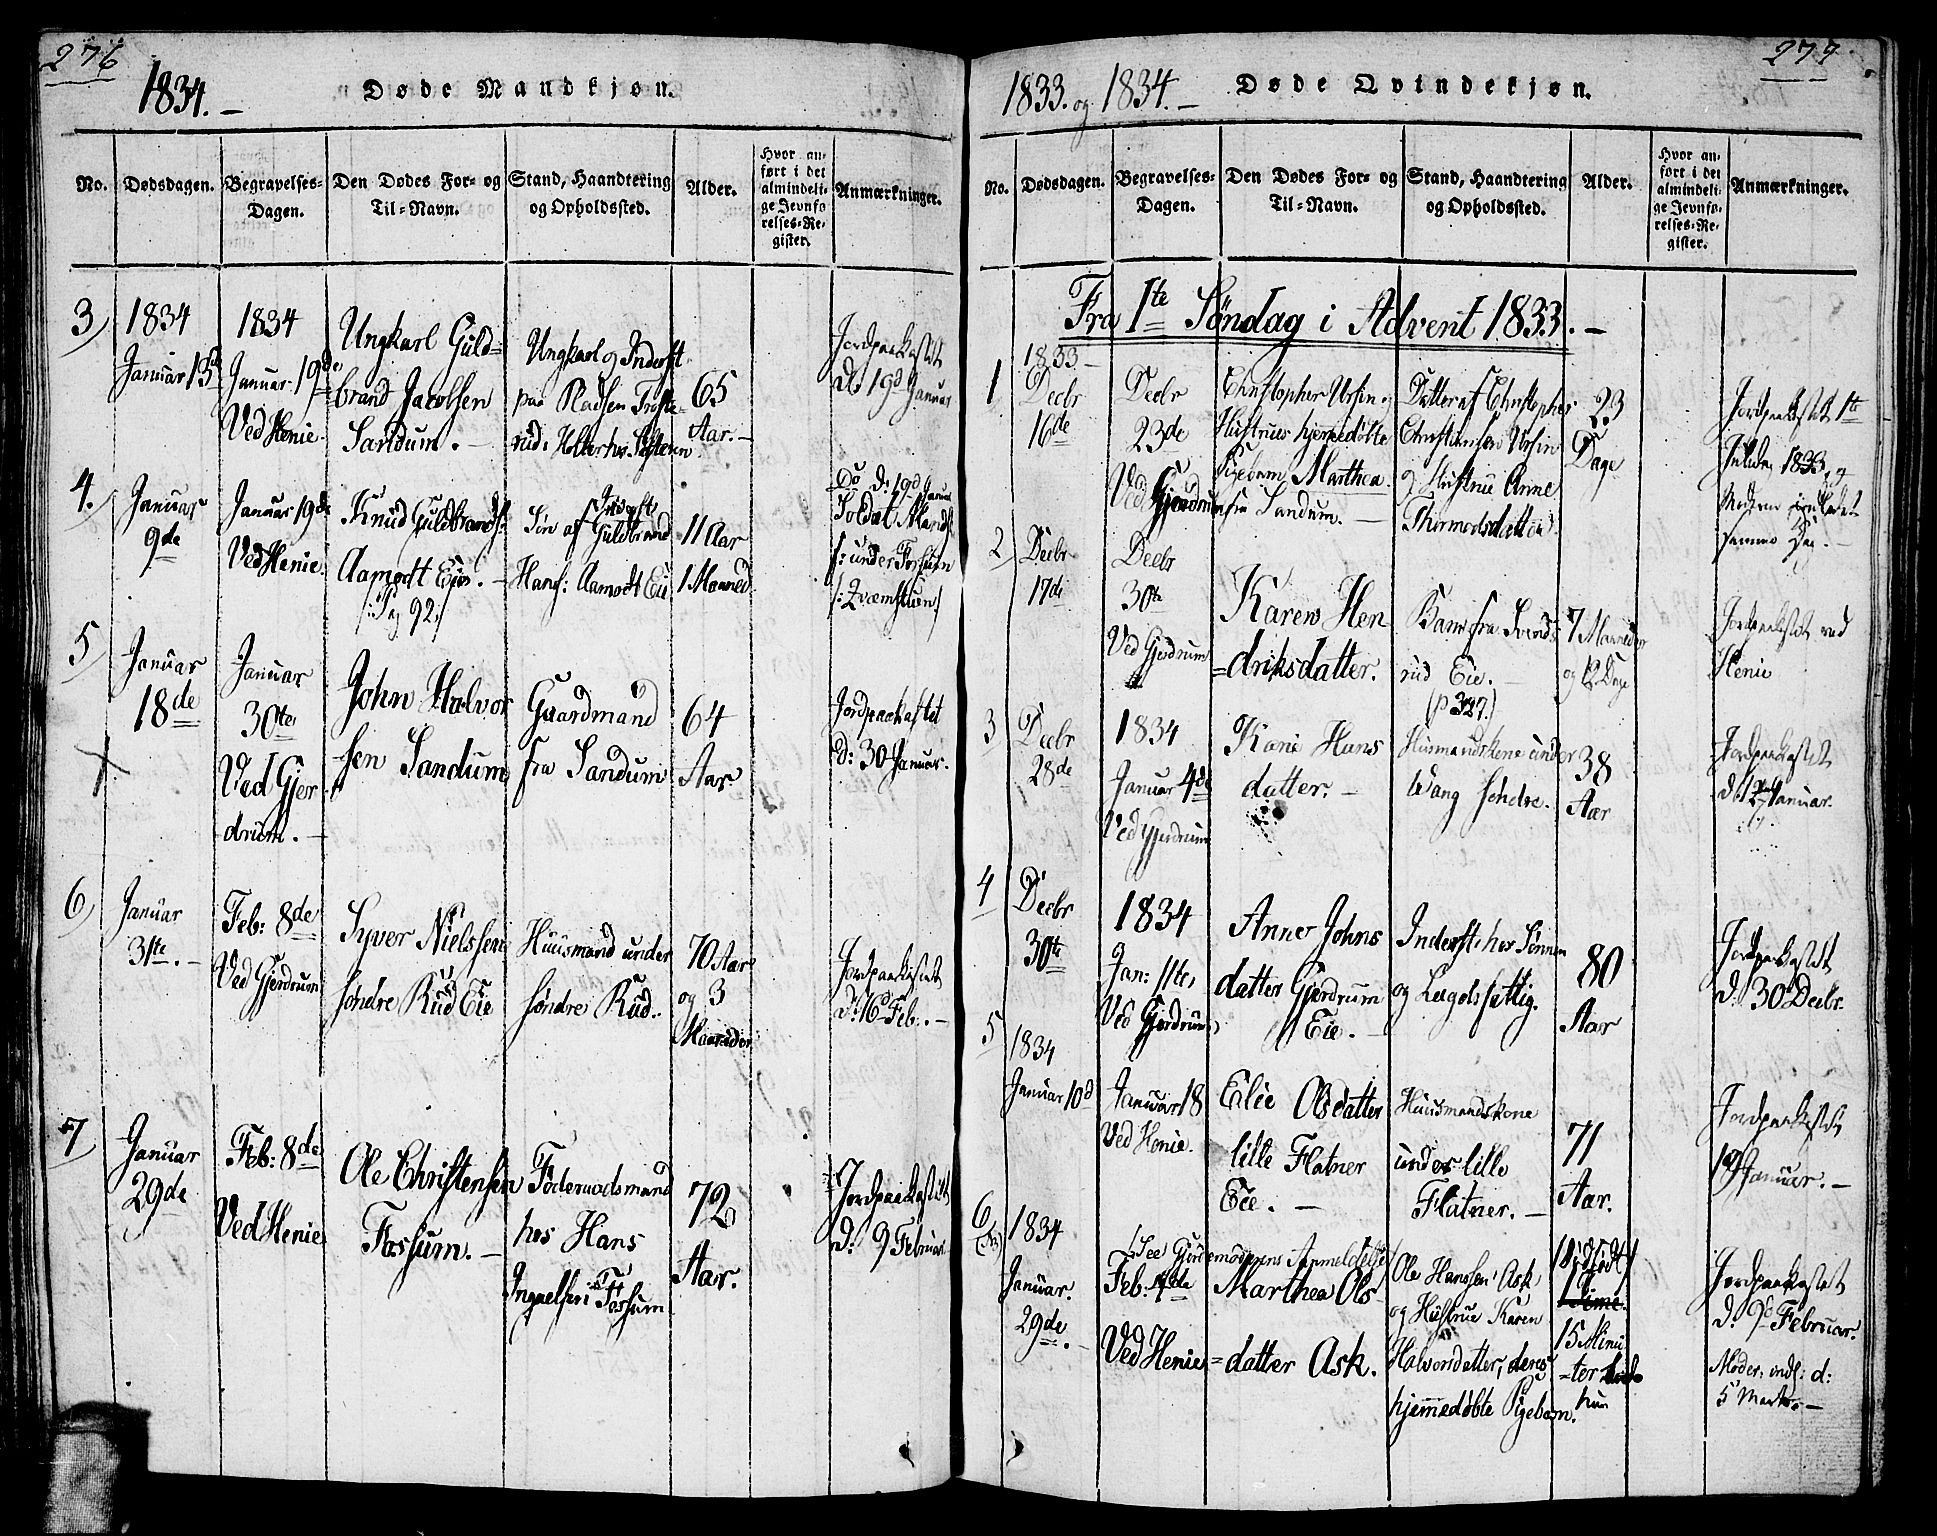 276
1834.
Døde Mandkjøn.
No.
Dødsdagen.
Begravelses-Dagen.
Den Dødes For- og Til-Navn.
Stand, Haandtering og Opholdssted.
Alder.
Hvor anført i det almindelige Jevnførelses-Register.
Anmærkninger.
3)
1834
Januar 13d
1834
Januar 19de
Ved Henie.
Ungkarl Guld-
brand Jacobsen
Sandum.
Ungkarl og Inderst
paa Pladsen
65
Aar.
Jordpaakastet
d: 19d Januar
4.
Januar
9de
Januar 19de
Ved Henie
Knud Guldbrands:
Aamodt Eie.
(Pag 92.)
Søn af Guldbrand
Hans: Aamodt Eie
11 Aar
1 Maaned.
Do d: 19d Januar
5)
Januar
18de
Januar
30te
Ved Gjer
drum.
John Halvor
sen Sandum
Gaardmand
fra Sandum
64
Aar.
Jordpaakastet
d: 30 Januar.
6)
Januar
31te.
Feb: 8de
Ved Gjerdrum
Syver Nielssen
søndre Rud Eie
Huusmand under
søndre Rud.
70 Aar
og 3
Maaneder
Jordpaakastet
d: 16 Feb.
7)
Januar
29de
Feb: 8de
Ved Henie
Ole Christensen
Fossum.
Föderaadsmand
hos Hans
Ingvelsen Fossum
72
Aar.
Jordpaakastet
d: 9 Februar
277.
1833. og 1834.
Døde Qvindekjøn.
No.
Dødsdagen.
Begravelses-Dagen.
Den Dødes For- og Til-Navn.
Stand, Haandtering og Opholdssted.
Alder.
Hvor anført i det almindelige Jevnførelses-Register.
Anmærkninger.
Fra 1te Söndag i Advent 1833.
1
1833
Decbr
16de
Decbr
23de
Ved Gjerdrum
Christopher Ursin og
Hustrues hjemedøbte
Pigebarn Marthea
fra Sandum.
Datter af Christopher
Christiansen Ursin
og Hustrue Anne
Thormodsdatter
23
Dage
Jordpaakastet 1te
Juledag 1833, og
Moderen indledet
samme Dag.
2)
Decbr
17de
Decbr
30te
Ved Gjerdrum
Karen Hen
driksdatter.
Barn fra
rud Eie.
(p 327.)
7 Maaneder
og Dage
Jordpaakastet ved
Henie
3)
Decbr
28de
1834
Januar 4de
Ved Gjerdrum
Karie Hans
datter.
Huusmandskone under
Wang søndre.
38
Aar
Jordpaakastet
d: Januar.
4
Decbr
30te
1834
Jan: 11te
Ved Gjerdrum
Anne Johns
datter Gjerdrum
Eie.
Inderste hos Sønnen
og Lægdsfattig.
80
Aar
Jordpaakastet
d: 30 Decbr.
5
1834
Januar 10d
Januar 18
Ved Henie.
Elie Olsdatter
lille Flatner
Eie.
Huusmandskone
under lille
Flatner.
71
Aar.
Jordpaakastet
19 Januar.
6
1834
Januar.
29de.
(See Gjordemoderens Anmeldelse)
Feb: de
Ved Henie
Marthea Ols
datter Ask.
Ole Hanssen Ask
og Hustrue Karen
Halvorsdatter, deres
hjemmedøbte Pigebarn.
1 Time
15 Minu
ter
Jordpaakastet
d: 9d Februar.
Moder: indl: d:
5 Marts.